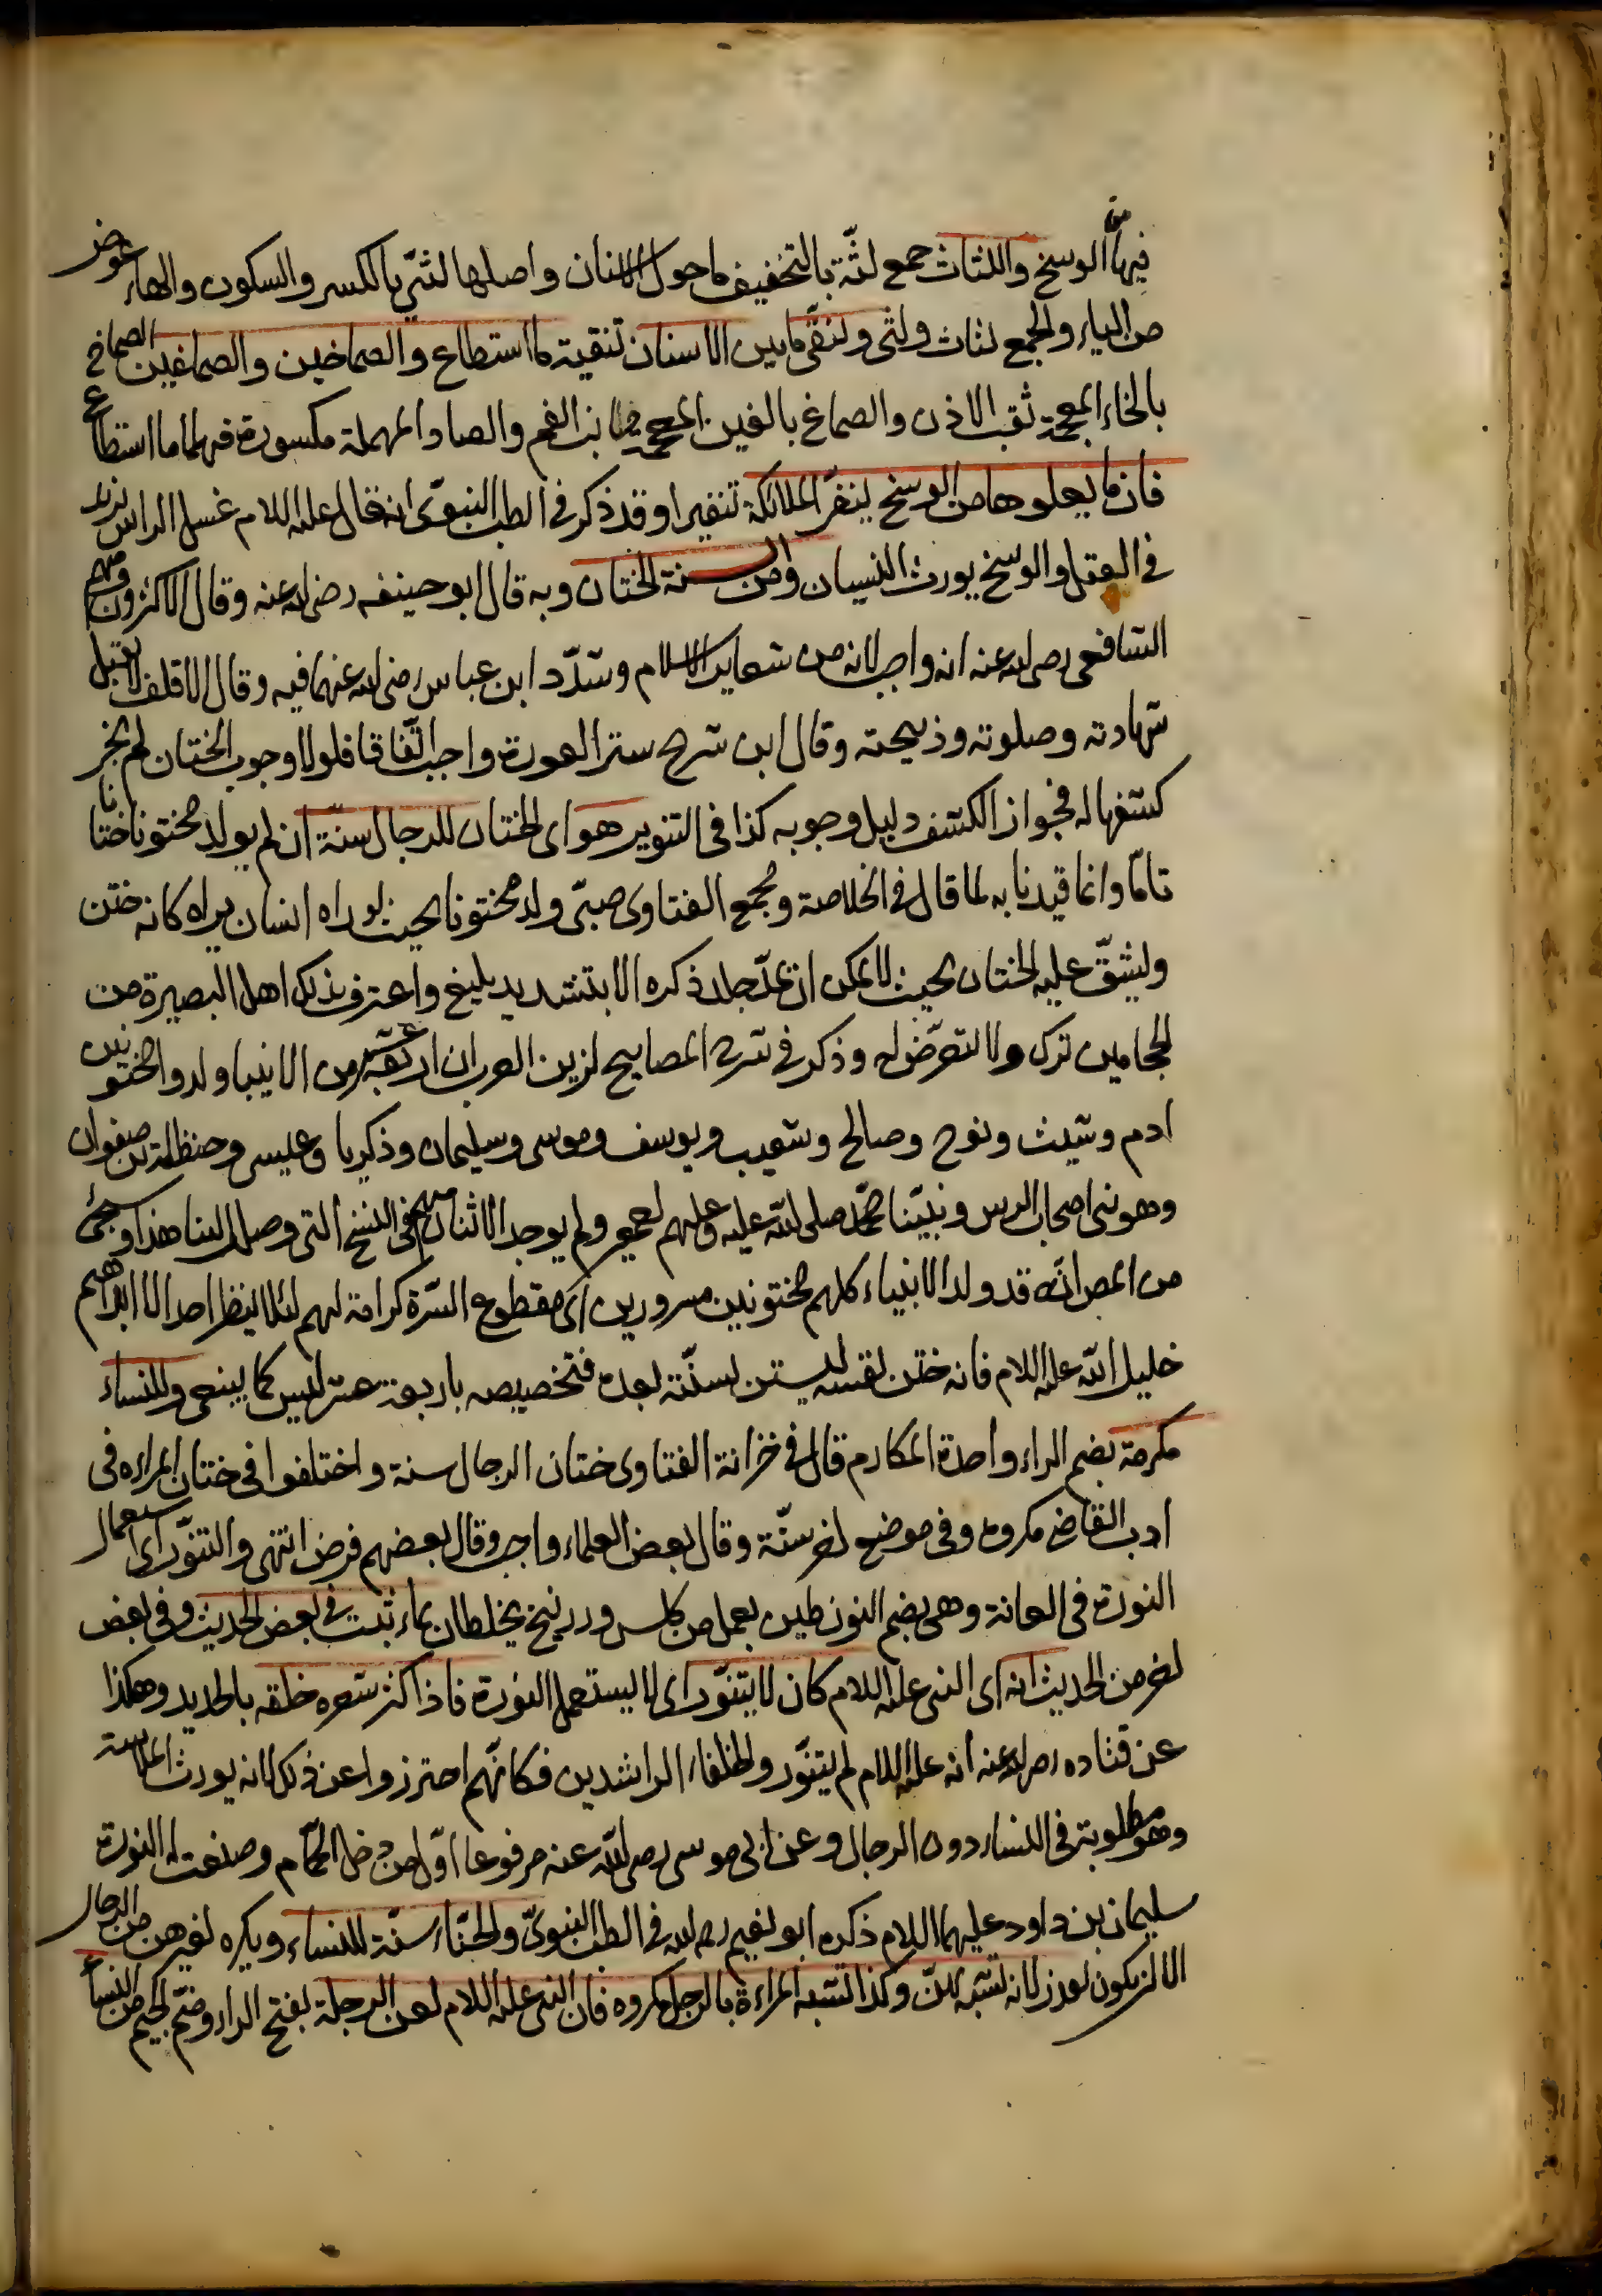 فيها من الوسخ واللثات جمع لثة بالتخفيف ما حول الاسنان واصلها لثي بالكسر والسكون والهاء عوض
من الياء والجمع لثات ولثى ولنقى ما بين الاسنان تنقية ما استطاع والصماخين والصماغين الصماخ
بالخاء المعجمة ثقب الاذن والصماغ بالغين المعجمة جانب الفم والصاد المهملة مكسورة فيهما ما استطاع
فان ما يعلوها من الوسخ ينفر الملائكة تنفيرا وقد ذكر فى الطب النبوى انه قال عليه السلام غسل الراس يزيد
فى العقل والوسخ يورث النسيان ومن السنة الختان وبه قال ابو حنيفه رضى الله عنه وقال الاكثرون ومنهم
الشافعى رضى الله عنه انه واجب لانه من شعاير الاسلام وشدد ابن عباس رضى الله عنهما فيه وقال الاقلف لا يقبل
شهادته وصلوته وذبيحته وقال ابن شريح ستر العورة واجب اتفاقا فلولا وجوب الختان لم يجز
كشفها له فجواز الكشف دليل وجوبه كذا فى التنوير هو اى الختان للرجال سنة ان لم يولد مختونا ختانا
تاما وانما قيدنا به لما قال فى الخلاصة ومجمع الفتاوى صبى ولد مختونا بحيث لو راه انسان يراه كانه ختن
وليشق عليه الختان بحيث لا يمكن ان يمد جلد ذكره الا بتشديد بليغ واعترف بذلك اهل البصيرة من
الحجامين ترك ولا لتعرض له وذكر فى شرح المصابيح لزين العرب ان اربعة عشر من الانبيا ولدوا مختونين
ادم وشيث ونوح وصالح وشعيب ويوسف وموسى وسليمان وذكريا وعيسى وحنظلة بن صفوان
وهو نبى اصحاب الرس ونبينا محمد صلى الله عليه وعليهم جميع ولم يوجد الاثنان منهم فى النسخ التى وصل الينا هذا وجئ
من المص انه قد ولد الانبياء كلهم مختونين مسرورين اى مقطوع السرة كرامة لهم لئلا ينظر احد الا ابراهيم
خليل الله عليه السلام فانه ختن نفسه ليستن لسنته بعده فتخصيصه باربعة عشر ليس كما ينبغى وللنساء
مكرمة بضم الراء واحدة المكارم قال فى خزانة الفتاوى ختان الرجال سنة واختلفوا فى ختان المراءه فى
ادب القاضى مكروه وفى موضع اخر سنة وقال بعض العلماء واجب وقال بعضهم فرض انتهى والتنور اى استعمال
النورة فى العانة وهى بضم النون طين يعمل من كلس وزرنيخ يخلطان بماء ثبت فى بعض الحديث وفى بعض
اخر من الحديث انه اى النبى عليه السلام كان لا يتنور اى لا يستعمل النورة فاذا كثر شعره حلقه بالحديد وهكذا
عن قتاده رضى الله عنه انه عليه السلام لم يتنور والخلفاء الراشدين فكانهم احترزوا عن ذلك لانه يورث الملاسة
وهو مطلوبة فى النساء دون الرجال وعن ابى موسى رضى الله عنه مرفوعا اول من دخل الحمام وصنعت له النورة
سليمان بن داود عليهما السلام ذكره ابو نعيم رحمه الله فى الطب النبوى والحناء سنة للنساء ويكره لغيرهن من الرجال
الا ان يكون لعذر لانه تشبه بهن وكذا تشبه المراءة بالرجل مكروه فان النبى عليه السلام لعن الرجلة بفتح الراء وضم الجيم من النساء